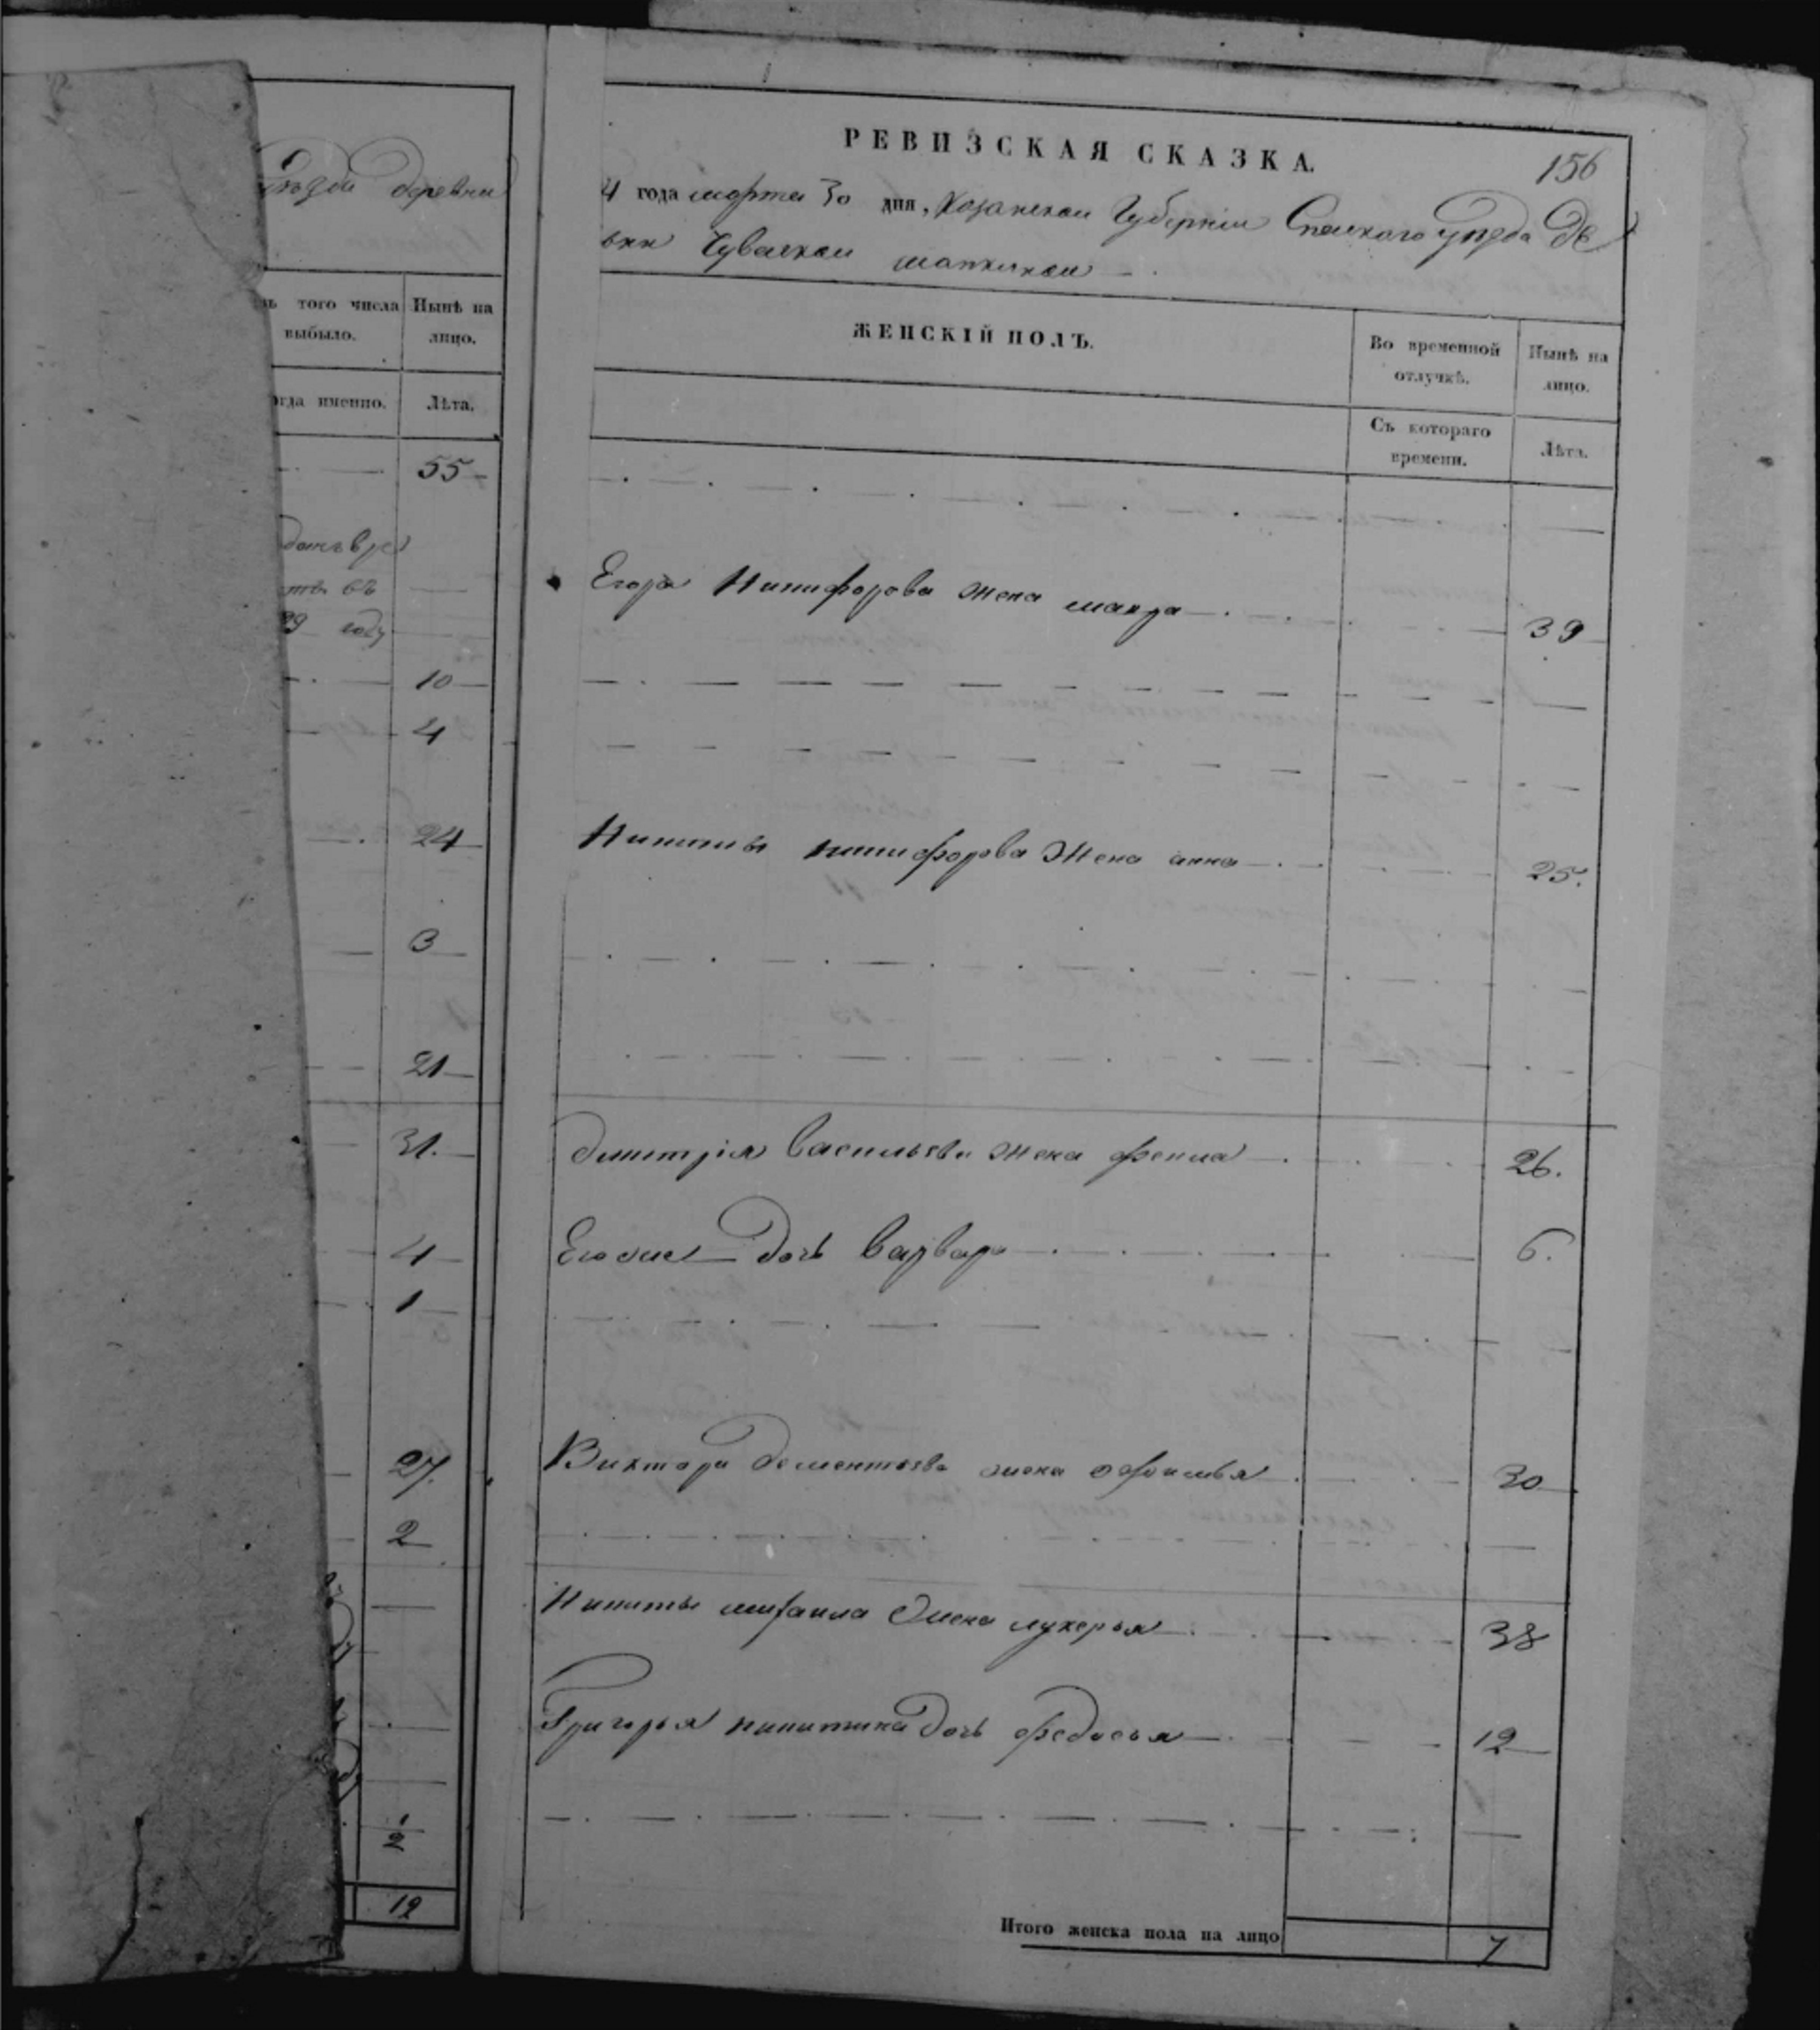 уѣзда деревни
того числа
выбыло.
Нынѣ на
лицо.
именно.
Лѣта.
55
въ
9 году
10
4
24
3
21
31.
4
1
27.
2
2
12
РЕВИЗСКАЯ СКАЗКА.
156
4 года марта 30 дня, Казанской Губерніи Спаскаго уѣзда Де
вни Чувашской
ЖЕНСКІЙ ПОЛЪ.
Во временной
отлучкѣ.
Нынѣ на
лицо.
Съ котораго
времени.
Лѣта.
Егора Никифорова жена макра 39
Никиты никифорова Жена анна 25.
дмитрія васильева жена фекла 26.
Его дочь варвара 6.
Виктора дементьева жена 30
Никиты михаила жена лукерья 38
Григорья никитина дочь федосья 12
Итого женска пола на лицо 7